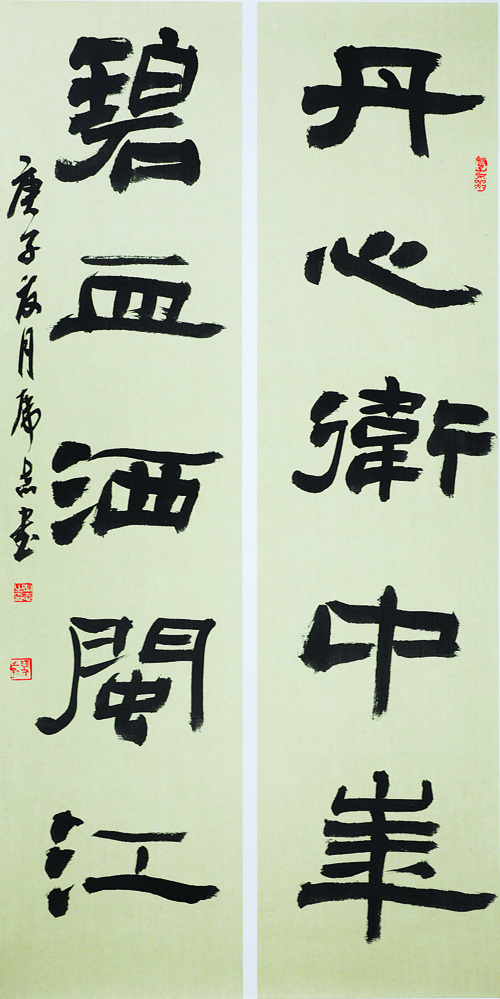 丹心衛中華
碧血洒閩江
庚子夏月席志书